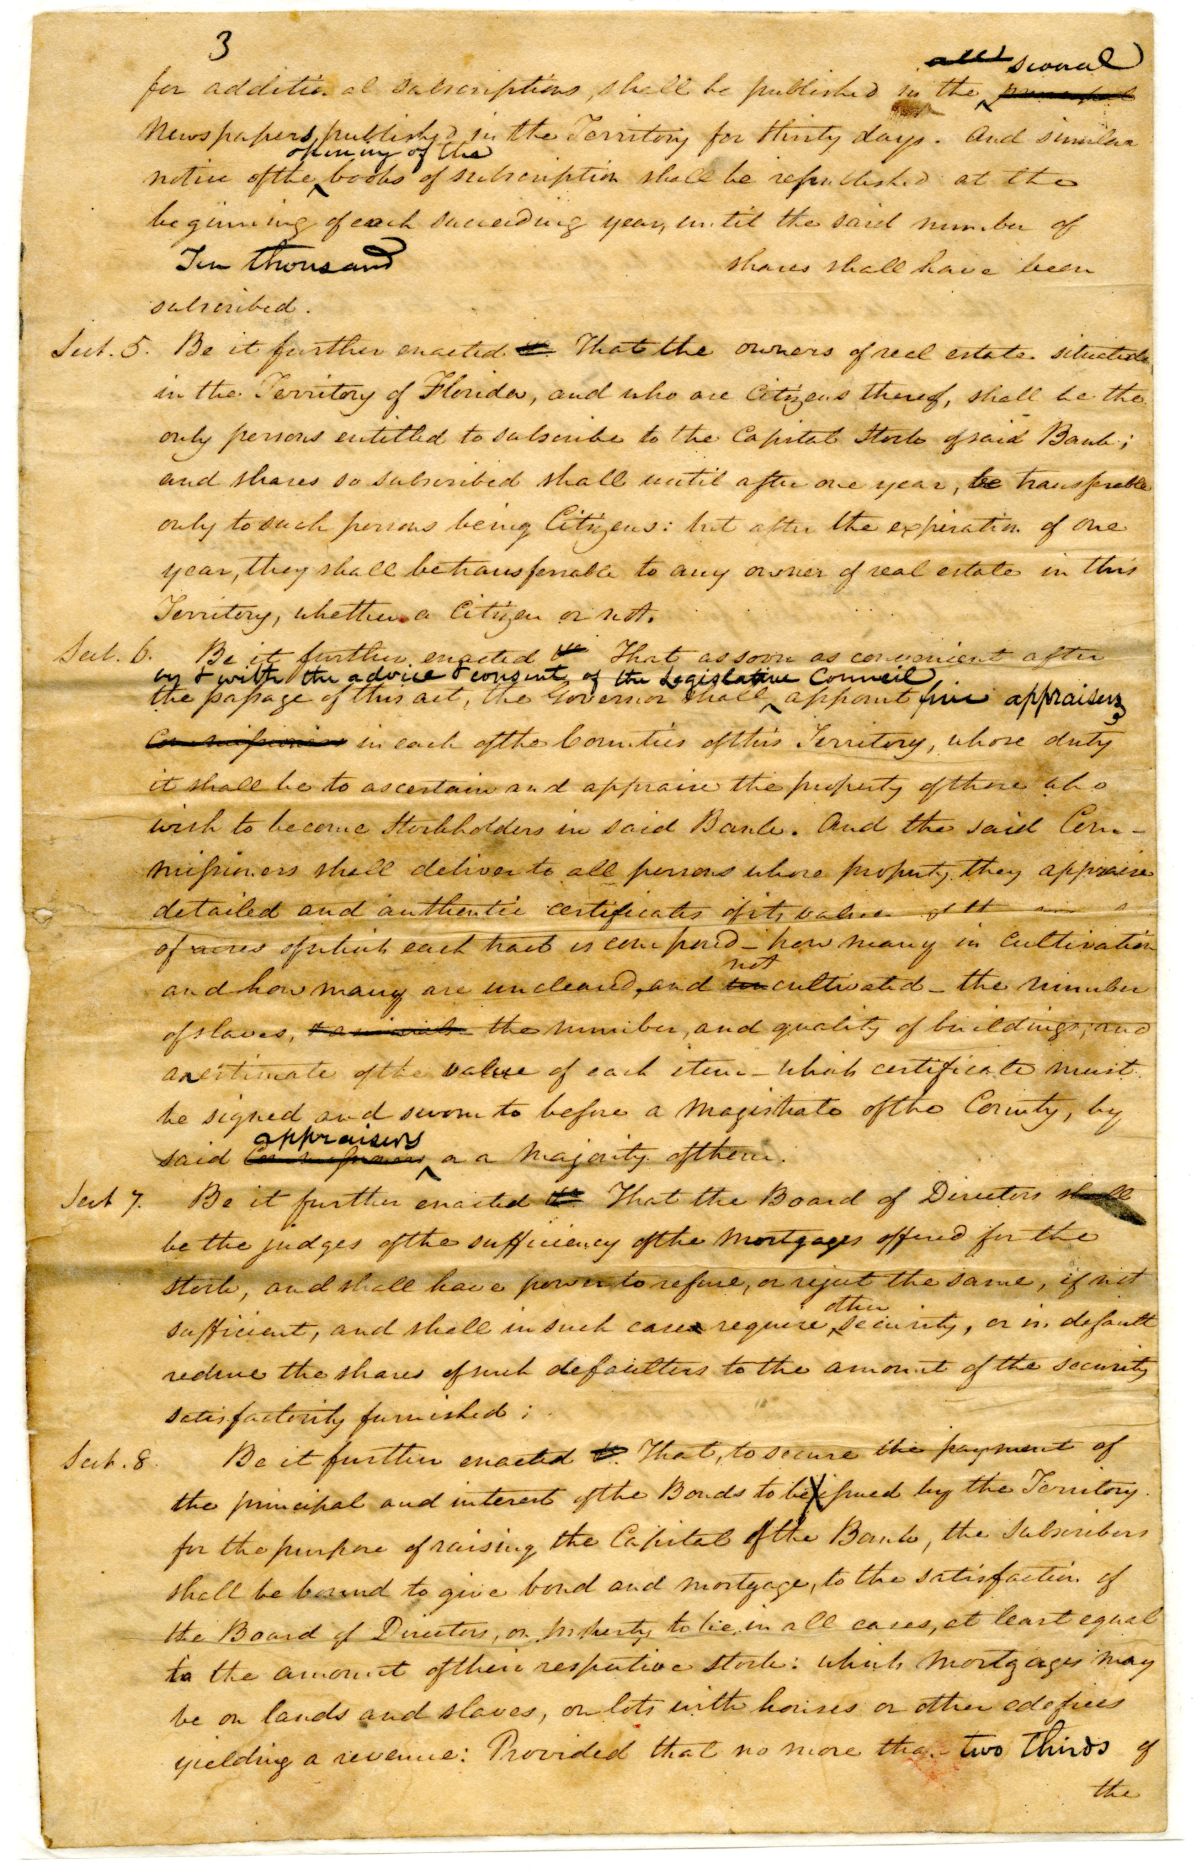 3
all several
for additional subscriptions, shall be published in the principal
Newspapers, published in the Territory for thirty days. And similar
opening of the
notice of the books of subscription shall be republished at the
beginning of each succeeding year, until the said number of
Ten thousand shares shall have been
subscribed.
Sect. 5. Be it further enacted &c That the owners of real estate situated
in the Territory of Florida, and who are Citizens thereof, shall be the
only persons entitled to subscribe to the Capital Stock of said Bank;
and shares so subscribed shall until after one year, be transferable
only to such persons being Citizens: but after the expiration of one
year, they shall be transferrable to any owner of real estate in this
Territory, whether a Citizen or not.
Sect. 6. Be it further enacted &c That as soon as convenient after
by & with the advice & consent of the Legislative Council
the passage of this act, the Governor shall appoint five appraisers
Commissioners in each of the Counties of this Territory, whose duty
it shall be to ascertain and appraise the property of those who
wish to become Stockholders in said Bank. And the said Com-
missioners shall deliver to all persons whose property they appraise
detailed and authentic certificates of its value
of acres of which each tract is composed – how many in cultivation
not
and how many are uncleared, and un cultivated – the number
of slaves, the number, and quality of buildings; and
an estimate of the value of each item – which certificate must
be signed and sworn to before a Magistrate of the County, by
appraisers
said Commissioners or a Majority of them.
Sect 7. Be it further enacted &c That the Board of Directors shall
be the judges of the sufficiency of the Mortgages offered for the
stock, and shall have power to refuse, or reject the same, if not
other
sufficient, and shall in such cases require security, or in default
reduce the shares of such defaulters to the amount of the security
satisfactorily furnished;
Sect. 8. Be it further enacted &c. That, to secure the payment of
the principal and interest of the Bonds to be issued by the Territory
for the purpose of raising the Capital of the Bank, the Subscribers
shall be bound to give bond and mortgage, to the satisfaction of
the Board of Directors, on property to be, in all cases, at least equal
to the amount of their respective stock: which Mortgages may
be on lands and slaves, on lots with houses or other edefices
yielding a revenue: Provided that no more than two thirds of
the